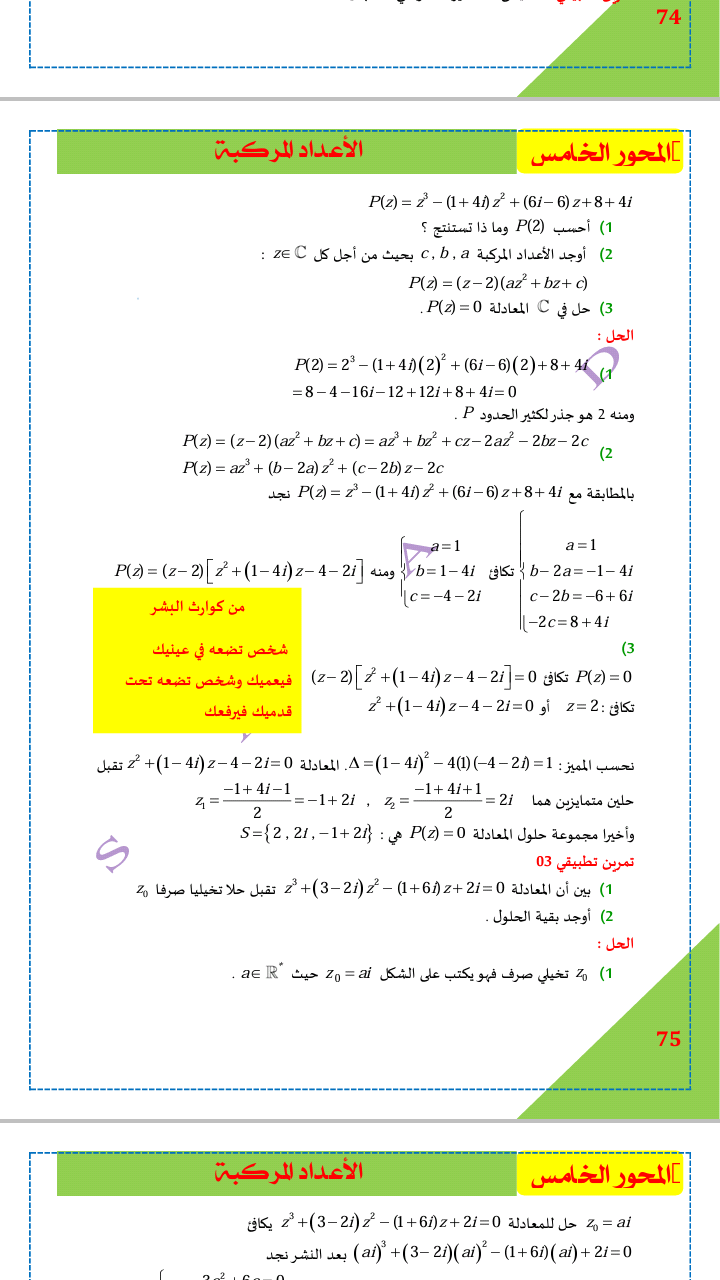 74
المحور الخامس
الأعداد المركبة
P(z) = z³ − (1+4i)z² + (6i−6)z+8+4i
1) أحسب P(2) وما ذا تستنتج ؟
2) أوجد الأعداد المركبة c , b , a بحيث من أجل كل z∈ℂ :
P(z) = (z−2)(az²+bz+c)
3) حل في ℂ المعادلة P(z)=0 .
الحل :
1) P(2) = 2³ − (1+4i)(2)² + (6i−6)(2)+8+4i
=8−4−16i−12+12i+8+4i=0
ومنه 2 هو جذر لكثير الحدود P .
2) P(z) = (z−2)(az²+bz+c) = az³+bz²+cz−2az²−2bz−2c
P(z) = az³+(b−2a)z²+(c−2b)z−2c
بالمطابقة مع P(z) = z³−(1+4i)z²+(6i−6)z+8+4i نجد
{a=1 b−2a=−1−4i c−2b=−6+6i −2c=8+4i تكافئ {a=1 b=1−4i c=−4−2i ومنه P(z)=(z−2)[z²+(1−4i)z−4−2i]
من كوارث البشر
شخص تضعه في عينيك
فيعميك وشخص تضعه تحت
قدميك فيرفعك
3)
P(z)=0 تكافئ (z−2)[z²+(1−4i)z−4−2i]=0
تكافئ : z=2 أو z²+(1−4i)z−4−2i=0
نحسب المميز : Δ=(1−4i)²−4(1)(−4−2i)=1 . المعادلة z²+(1−4i)z−4−2i=0 تقبل
حلين متمايزين هما z₁=(−1+4i−1)/2=−1+2i , z₂=(−1+4i+1)/2=2i
وأخيرا مجموعة حلول المعادلة P(z)=0 هي : S={2 , 2i , −1+2i}
تمرين تطبيقي 03
1) بين أن المعادلة z³+(3−2i)z²−(1+6i)z+2i=0 تقبل حلا تخيليا صرفا z₀
2) أوجد بقية الحلول .
الحل :
1) z₀ تخيلي صرف فهو يكتب على الشكل z₀=ai حيث a∈ℝ* .
S
A
D
75
المحور الخامس
الأعداد المركبة
z₀=ai حل للمعادلة z³+(3−2i)z²−(1+6i)z+2i=0 يكافئ
(ai)³+(3−2i)(ai)²−(1+6i)(ai)+2i=0 بعد النشر نجد